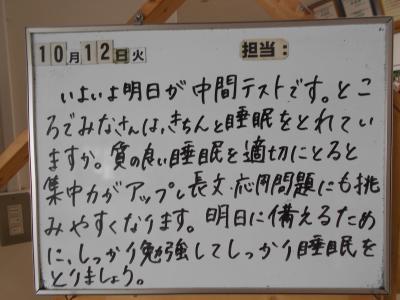 10月12日火 担当：
いよいよ明日が中間テストです。とこ
ろでみなさんは、きちんと睡眠をとれてい
ますか。質の良い睡眠を適切にとると
集中力がアップし長文・応用問題にも挑
みやすくなります。明日に備えるため
に、しっかり勉強してしっかり睡眠を
とりましょう。